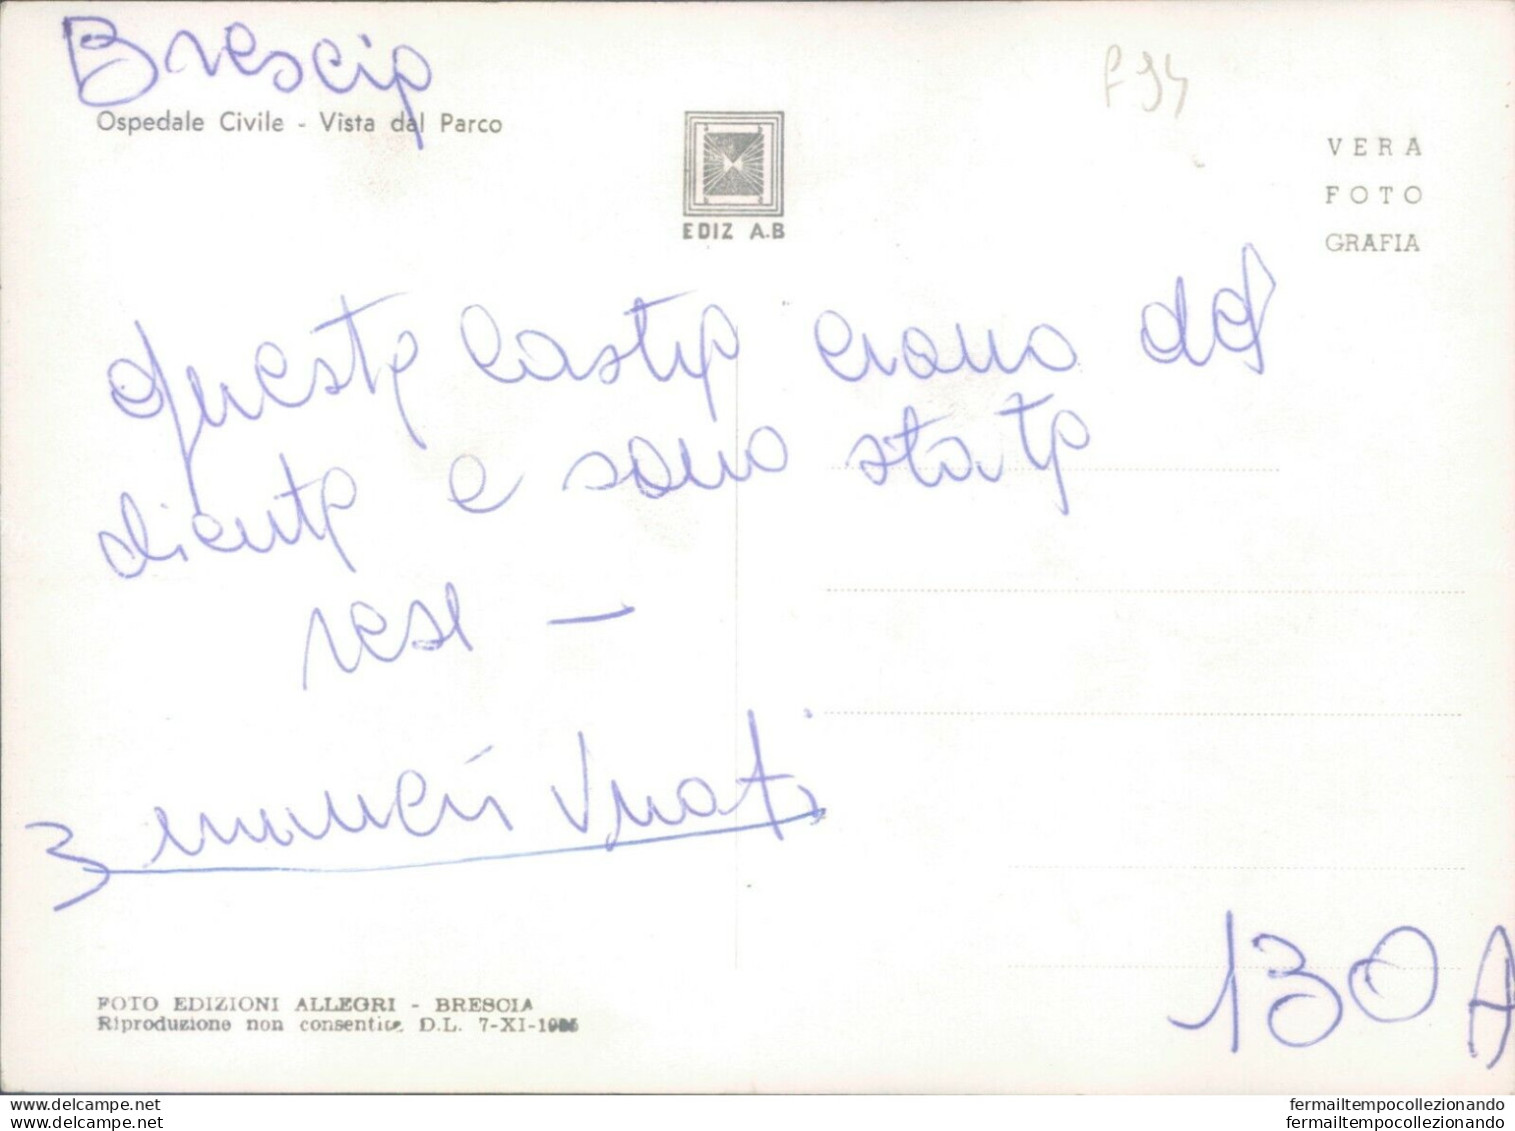 Brescia
Ospedale Civile - Vista dal Parco
F94
EDIZ A.B
VERA
FOTO
GRAFIA
queste caste erano del
diente e sono state
rese -
3 numeri
130 A
FOTO EDIZIONI ALLEGRI - BRESCIA
Riproduzione non consentita D.L. 7-XI-19
fermailtempocollezionando
www.delcampe.net
fermailtempocollezionando
www.delcampe.net
fermailtempocollezionando